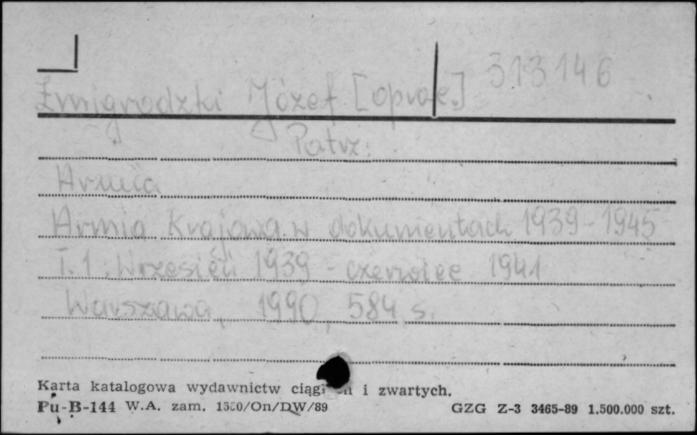 313146
Żmigrodzki Józef [oprac.]
Patrz:
Armia
Armia Krajowa w dokumentach 1939-1945
T. 1, Wrzesień 1939 - czerwiec 1941
Warszawa, 1990, 584 s.
Karta katalogowa wydawnictw i zwartych.
Pu-B-144 W.A. zam. /On/DW/89 GZG Z-3 3465-89 1.500.000 szt.